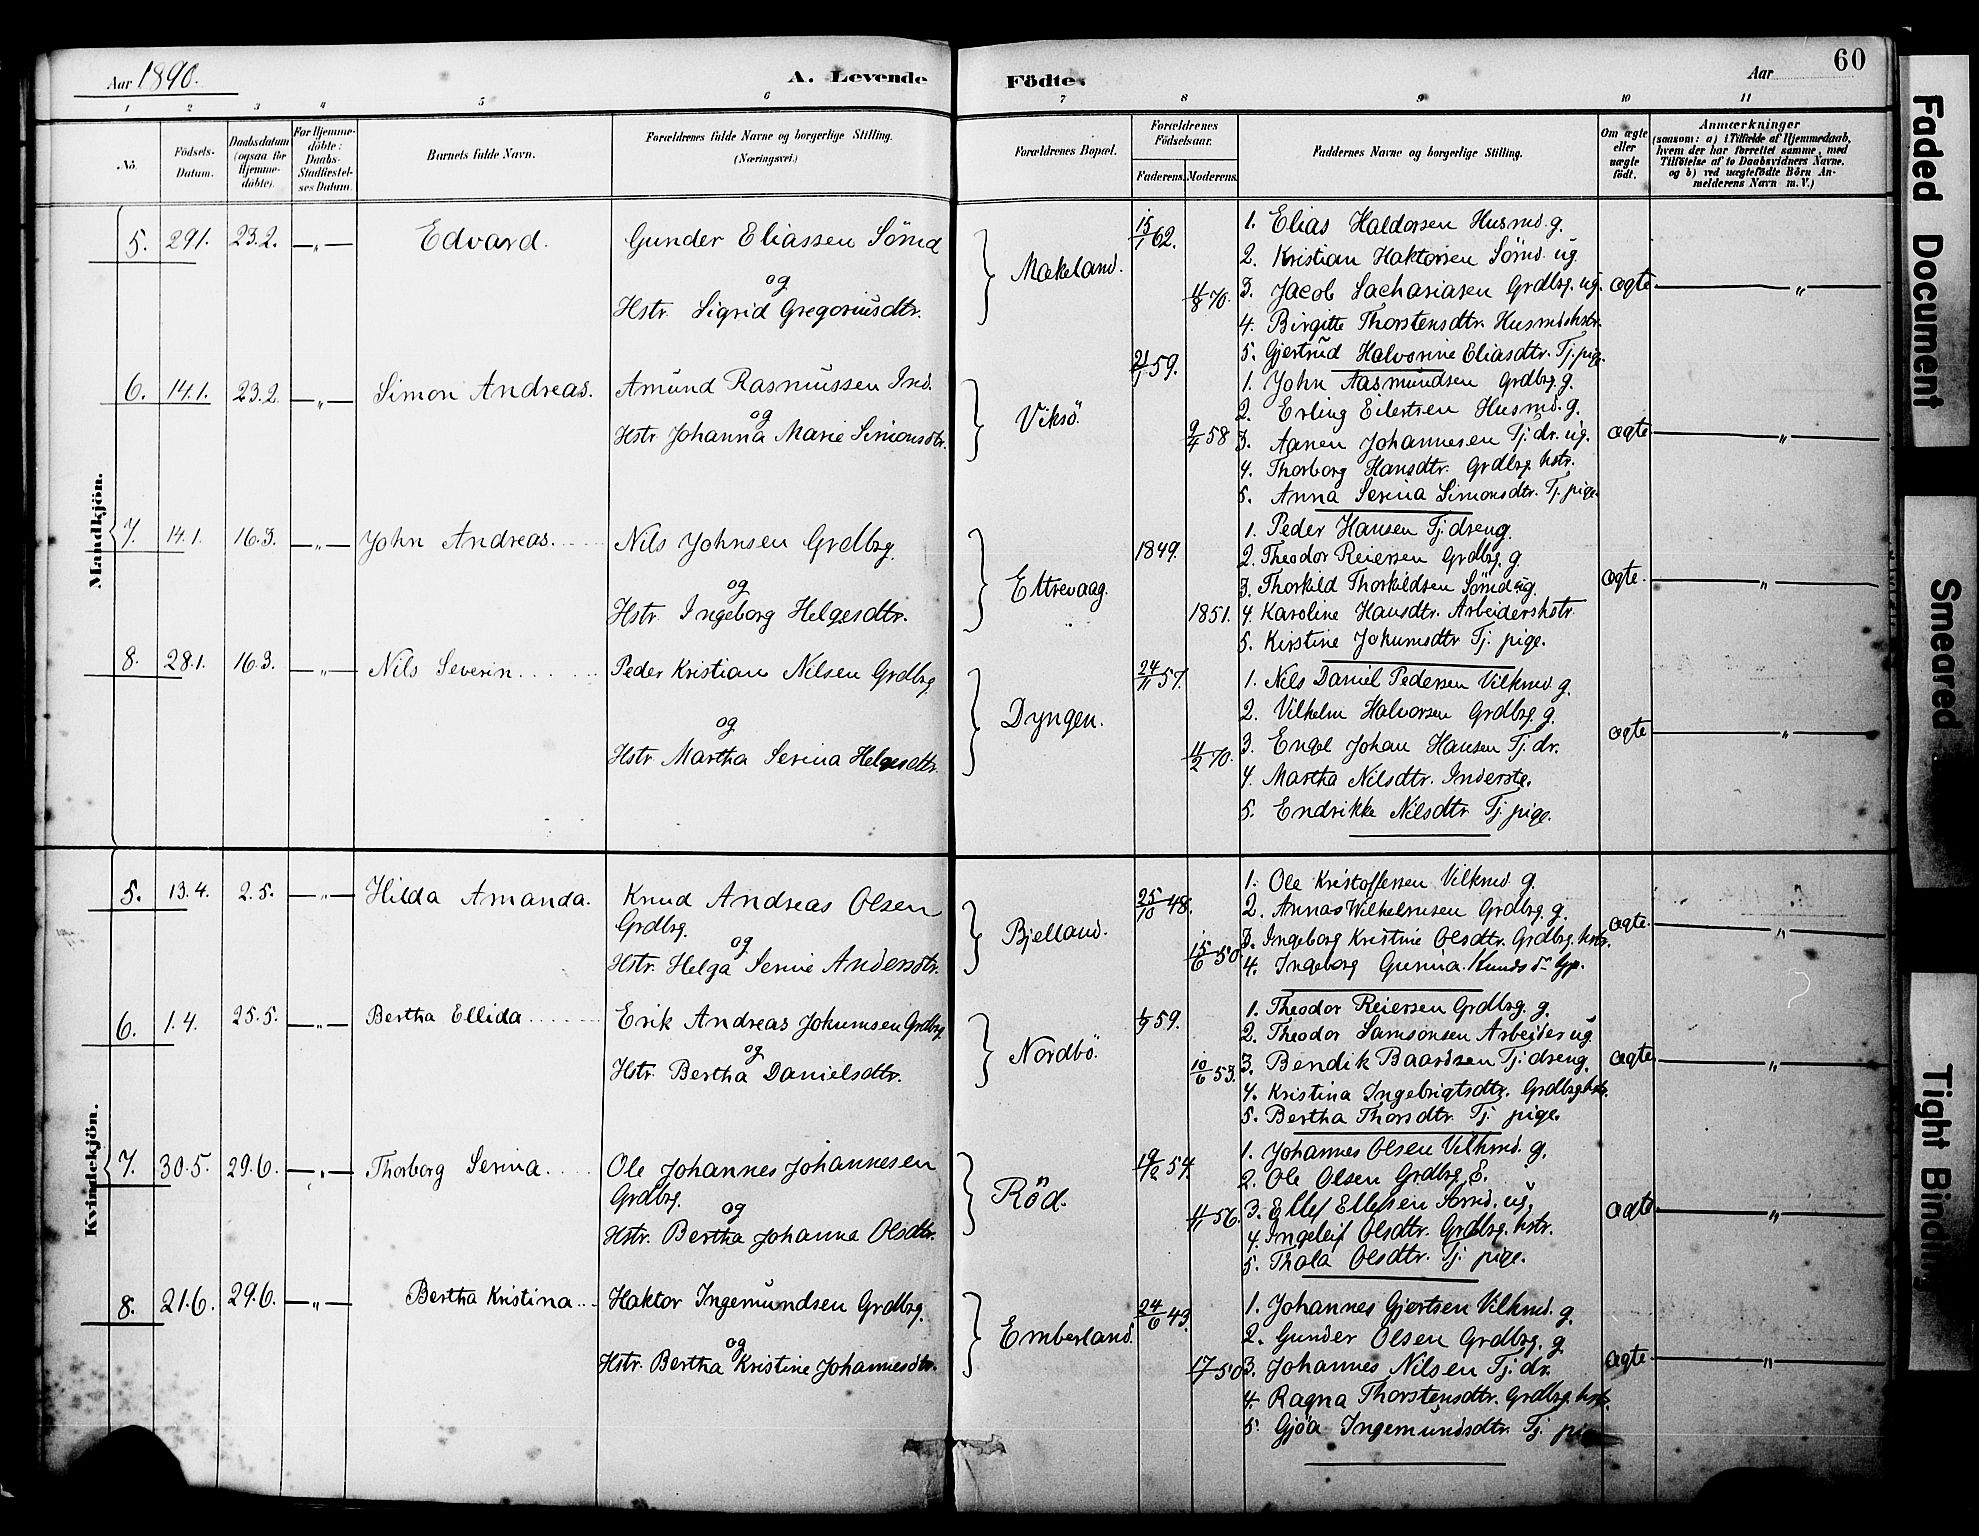 Aar 1890.
A. Levende
Födte.
Aar
60
1 2 3 4 5 6 7 8 9 10 11
No.
Födsels-
Datum.
Daabsdatum
(ogsaa for
Hjemme-
döbte).
For Hjemme-
döbte:
Daabs-
Stadfæstel-
ses Datum.
Barnets fulde Navn.
Forældrenes fulde Navne og borgerlige Stilling.
(Næringsvei.)
Forældrenes Bopæl.
Forældrenes
Födselsaar.
Faderens. Moderens.
Faddernes Navne og borgerlige Stilling.
Om ægte
eller
uægte
födt.
Anmærkninger
(saasom: a) i Tilfælde af Hjemmedaab,
hvem der har forrettet samme, med
Tilföielse af to Daabsvidners Navne,
og b) ved uægtefödte Börn An-
melderens Navn m. V.)
Mandkjön.
5. 29.1. 23.2. —„— Edvard. Gunder Eliassen Sömd
og
Hstr. Sigrid Gregoriusdtr.
Mækeland.
15/1 62.
11/8 70.
1. Elias Haldorsen Husmd. g.
2. Kristian Haktorsen Sömd. ug.
3. Jacob Sachariasen Grdbrg. ug.
4. Birgitte Thorstensdtr. Husmdshstr.
5. Gjertrud Halvorine Eliasdtr. Tj. pige.
ægte — „ —
6. 14.1. 23.2 —„— Simon Andreas. Amund Rasmussen Ind.
og
Hstr. Johanna Marie Simonsdtr.
Viksö.
21/1 59.
9/4 58
1. John Aasmundsen Grdbrg. g.
2. Erling Eilertsen Husmd. g.
3. Aanen Johannesen Tj. dr. ug.
4. Thorborg Hansdtr. Grdbrg. hstr.
5. Anna Serina Simonsdtr. Tj. pige.
ægte. — „ —
7. 14.1. 16.3. —„— John Andreas. Nils Johnsen Grdbrg.
og
Hstr. Ingeborg Helgesdtr.
Ettrevaag.
1849.
1851.
1. Peder Hansen Tj. dreng.
2. Theodor Reiersen Grdbrg. g.
3. Thorkild Thorkildsen Sömd ug.
4. Karoline Hansdtr. Arbeidershstr.
5. Kirstine Jokumsdtr Tj. pige.
ægte. — „ —
8. 28.1. 16.3. —„— Nils Severin. Peder Kristian Nilsen Grdbrg.
og
Hstr. Martha Serina Helgesdtr.
Dyngen.
24/11 57.
11/2 70.
1. Nils Daniel Pedersen Vilkmd. g.
2. Vilhelm Halvorsen Grdbrg. g.
3. Engel Johan Hansen Tj. dr.
4. Martha Nilsdtr. Inderste.
5. Endrikke Nilsdtr. Tj. pige.
ægte — „ —
Kvindekjön.
5. 13.4. 2.5. —„— Hilda Amanda. Knud Andreas Olsen
Grdbrg.
og
Hstr. Helga Serine Andersdtr.
Bjelland.
25/10 48.
15/6 50.
1. Ole Kristoffersen Vilkmd g.
2. Annas Wilhelmsen Grdbrg. g.
3. Ingeborg Kristine Olsdtr. Grdbrg. hstr.
4. Ingeborg Gurina Knudsdr.
ægte. — „ —
6. 1.4. 25.5. —„— Bertha Ellida Erik Andreas Jokumsen Grdbrg.
og
Hstr. Bertha Danielsdtr.
Nordbö.
59.
10/6 53.
1. Theodor Reiersen Grdbrg. g.
2. Theodor Samsonsen Arbeider ug.
3. Bendik Baardsen Tj. dreng.
4. Kristina Ingebrigtsdtr. Grdbrghstr.
5. Bertha Thorsdtr. Tj. pige.
ægte. — „ —
7. 30.5. 29.6. —„— Thorborg Serina. Ole Johannes Johannesen
Grdbrg.
og
Hstr. Bertha Johanna Olsdtr.
Röd.
19/12 54.
11/11 56.
1. Johannes Olsen Vilkmd. g.
2. Ole Olsen Grdbrg. E.
3. Ellef Ellefsen Sömd. ug.
4. Ingeleif Olsdtr. Grdbrg. hstr.
5. Thala Olsdtr. Tj. pige.
ægte — „ —
8. 21.6. 29.6. —„— Bertha Kristina Haktor Ingemundsen Grdbrg.
og
Hstr. Bertha Kristine Johannesdtr.
Emberland.
24/6 43.
50
1. Johannes Gjertsen Vilkmd. g.
2. Gunder Olsen Grdbrg. g.
3. Johannes Nilsen Tj. dr.
4. Ragna Thorstensdtr. Grdbrg. hstr.
5. Gjöa Ingemundsdtr. Tj.
ægte. — „ —
Faded Document
Smeared
Tight Binding